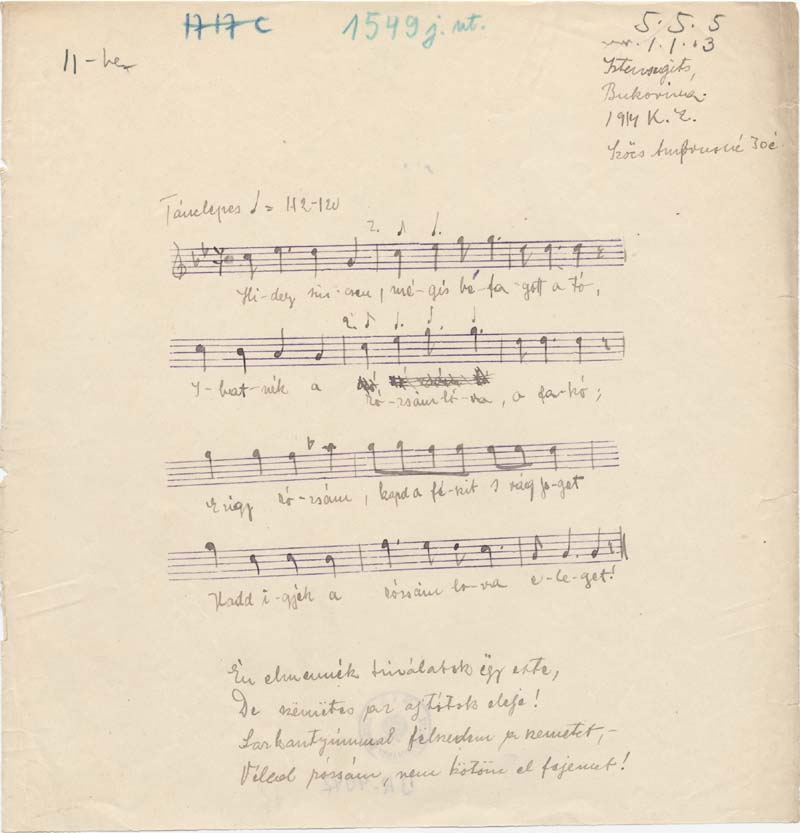 1717 C
1549 j. ut.
5. 5. 5
1. 1. 3
11-he
Istensegits,
Bukovina.
1914 K. Z.
Szőcs Ambrusné 30é
Tánclépes ♩ = 112-120
2.
Hi-deg sin-csen, mé-gis bé-fa-gott a tó,
2.
I-hat-nék a ró-zsám lo-va, a fa-kó;
Erigy ró-zsám, kapd a fé-kit s vágj jeget
Hadd i-gyék a rózsám lo-va e-le-get!
Én elmennék hozzátok ëgy este,
De szëmetes az ajtótok eleje!
Sarkantyúmmal félszedem a szemetet,-
Véled rózsám, nem kötöm el fejemet!